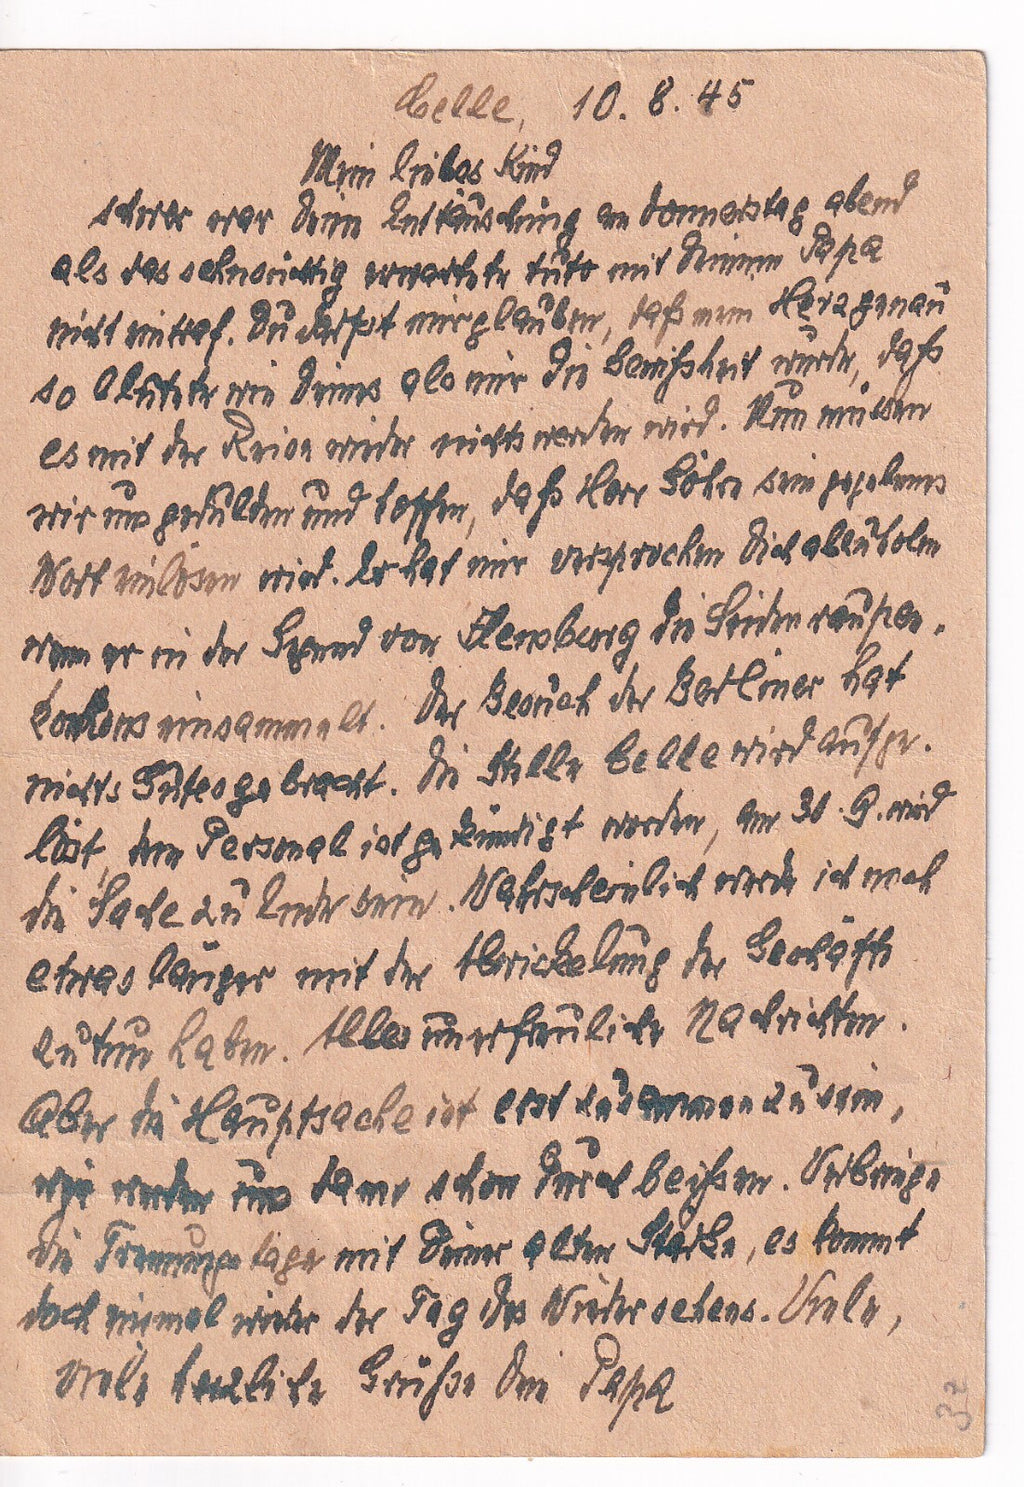 Celle, 10. 8. 45
Mein liebes Kind
schwer war deine Enttäuschung am Donnerstag abend
als das sehnsüchtig erwartete Auto mit deinem Papa
nicht eintraf. Du darfst mir glauben, daß mein Herz genau
so blutete wie deines als mir die Gewißheit wurde, daß
es mit der Reise wieder nichts werden wird. Nun müssen
wir uns gedulden und hoffen, daß Herr Göhre sein gegebenes
Wort einlösen wird. Er hat mir versprochen dich abzuholen
wenn er in der Gegend von Flensburg die Seidenraupen-
kokons einsammelt. Der Besuch der Berliner hat
nichts Gutes gebracht. Die Stelle Celle wird aufge-
löst, dem Personal ist gekündigt worden, am 30. 9. wird
die Sache zu Ende sein. Wahrscheinlich werde ich noch
etwas länger mit der Abwickelung der Geschäfte
zu tun haben. Alles unerfreuliche Nachrichten.
Aber die Hauptsache ist erst zusammen zu sein,
wir werden uns dann schon durchbeißen. Verbringe
die Trennungstage mit Deiner alten Stärke, es kommt
doch einmal wieder der Tag des Wiedersehens. Viele,
viele herzliche Grüße Dein Papa
32